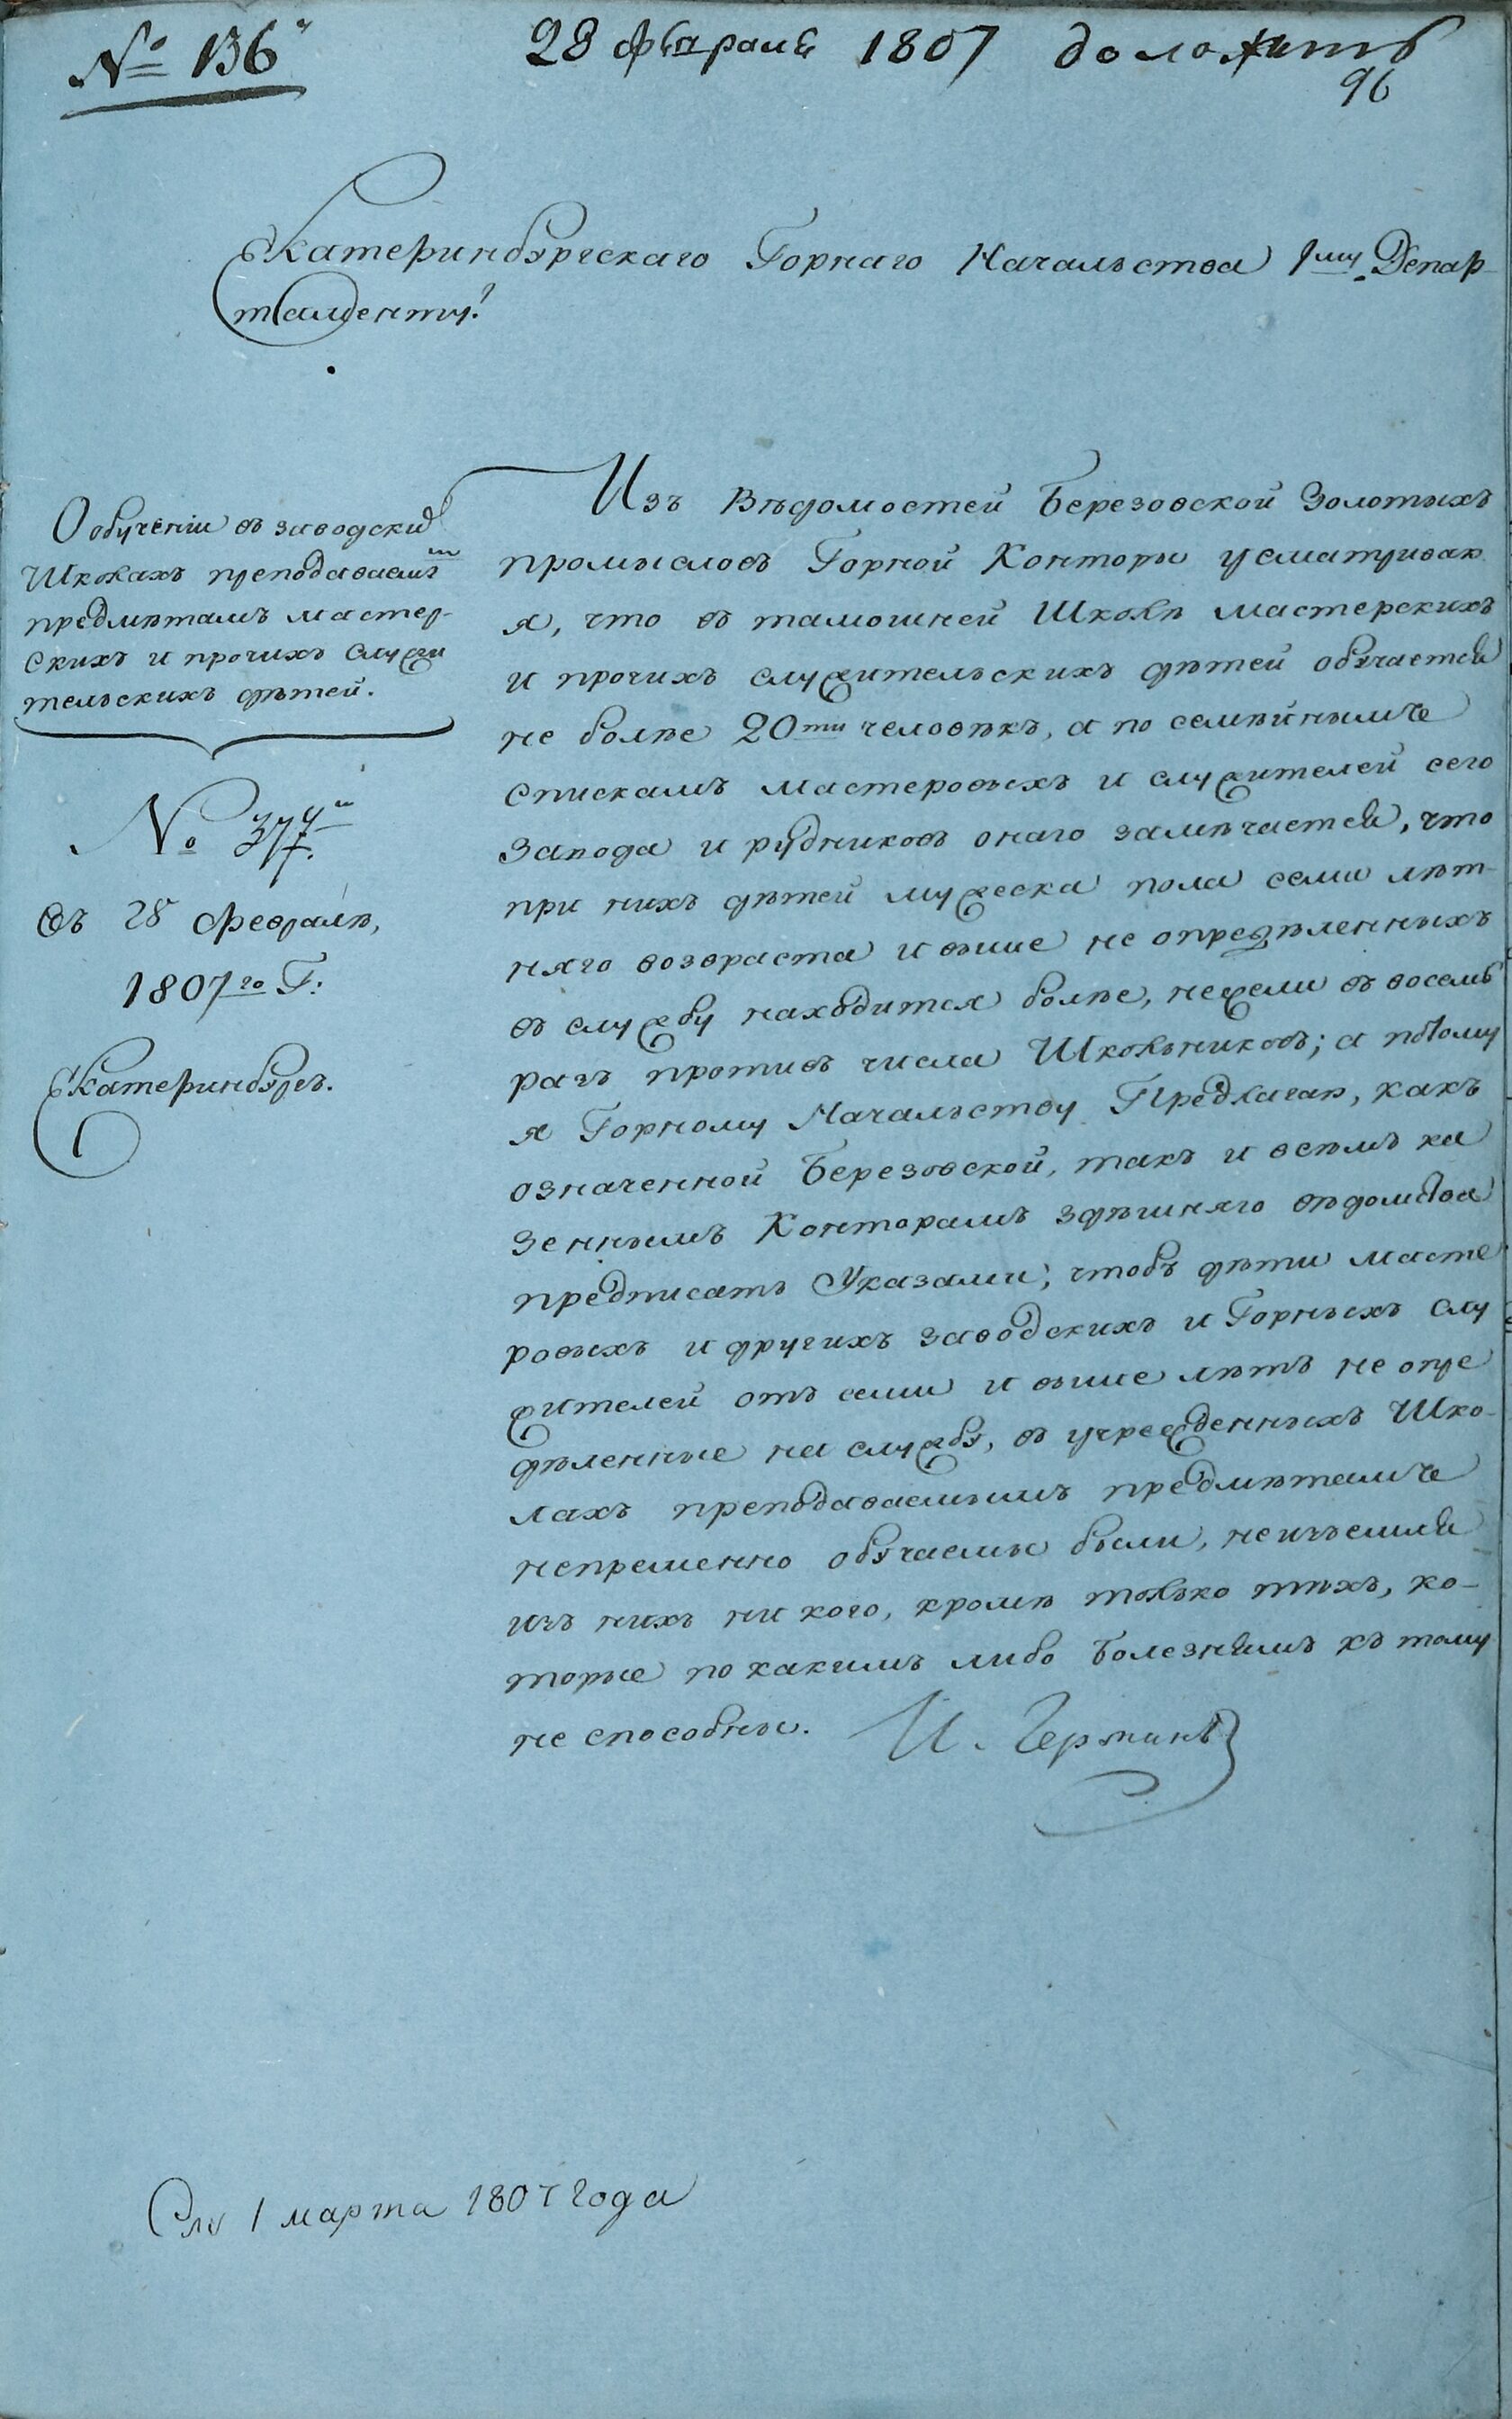 № 136
28 февраля 1807 доложить
96
Екатеринбургскаго Горнаго Начальства 1му Депар-
таменту!
О обученіи въ заводски
Школахъ преподаваемъ
предмѣтамъ мастер-
скихъ и прочихъ служи
тельскихъ дѣтей.
№ 377.
въ 28 Февраля,
1807го Г:
Екатеринбургъ.
Изъ Вѣдомостей Березовской Золотыхъ
промысловъ Горной Конторы усматриваю
я, что въ тамошней Школѣ мастерскихъ
и прочихъ служительскихъ дѣтей обучается
не болѣе 20ти человѣкъ, а по семѣйнымъ
спискамъ мастеровыхъ и служителей сего
Завода и рудниковъ онаго замѣчается, что
при нихъ дѣтей мужеска пола семи лѣт-
няго возраста и выше не опредѣленныхъ
въ службу находится болѣе, нежели въ восемь
разъ противъ числа Школьниковъ; а потому
я Горному Начальству Предлагаю, какъ
означенной Березовской, такъ и всѣмъ ка
зеннымъ Конторамъ здѣшняго вѣдомства
предписать Указами; чтобъ дѣти масте
ровыхъ и другихъ заводскихъ и Горныхъ слу
жителей отъ семи и выше лѣтъ не опре
дѣленные на службу, въ учрежденныхъ Шко-
лахъ преподаваемымъ предмѣтамъ
непременно обучаемы были, неизъемля
изъ нихъ ни кого, кромѣ только тѣхъ, ко-
торые по какимъ либо Болезнямъ къ тому
не способны. И. Германъ
Слу 1 марта 1807 года